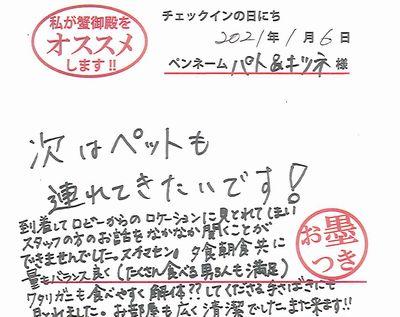 私が蟹御殿を
オススメ
します!!
チェックインの日にち
2021年1月6日
ペンネーム パト&キツネ 様
次はペットも
連れてきたいです!
到着してロビーからのロケーションに見とれてしまい
スタッフの方のお話をなかなか聞くことが
できませんでした。スミマセン。夕食朝食共に
量もバランス良く(たくさん食べる男子も満足)
ワタリガニも食べやすく解体??してくださる手さばきにも
見とれました。お部屋も広く清潔でした。また来ます!!
お墨
つき